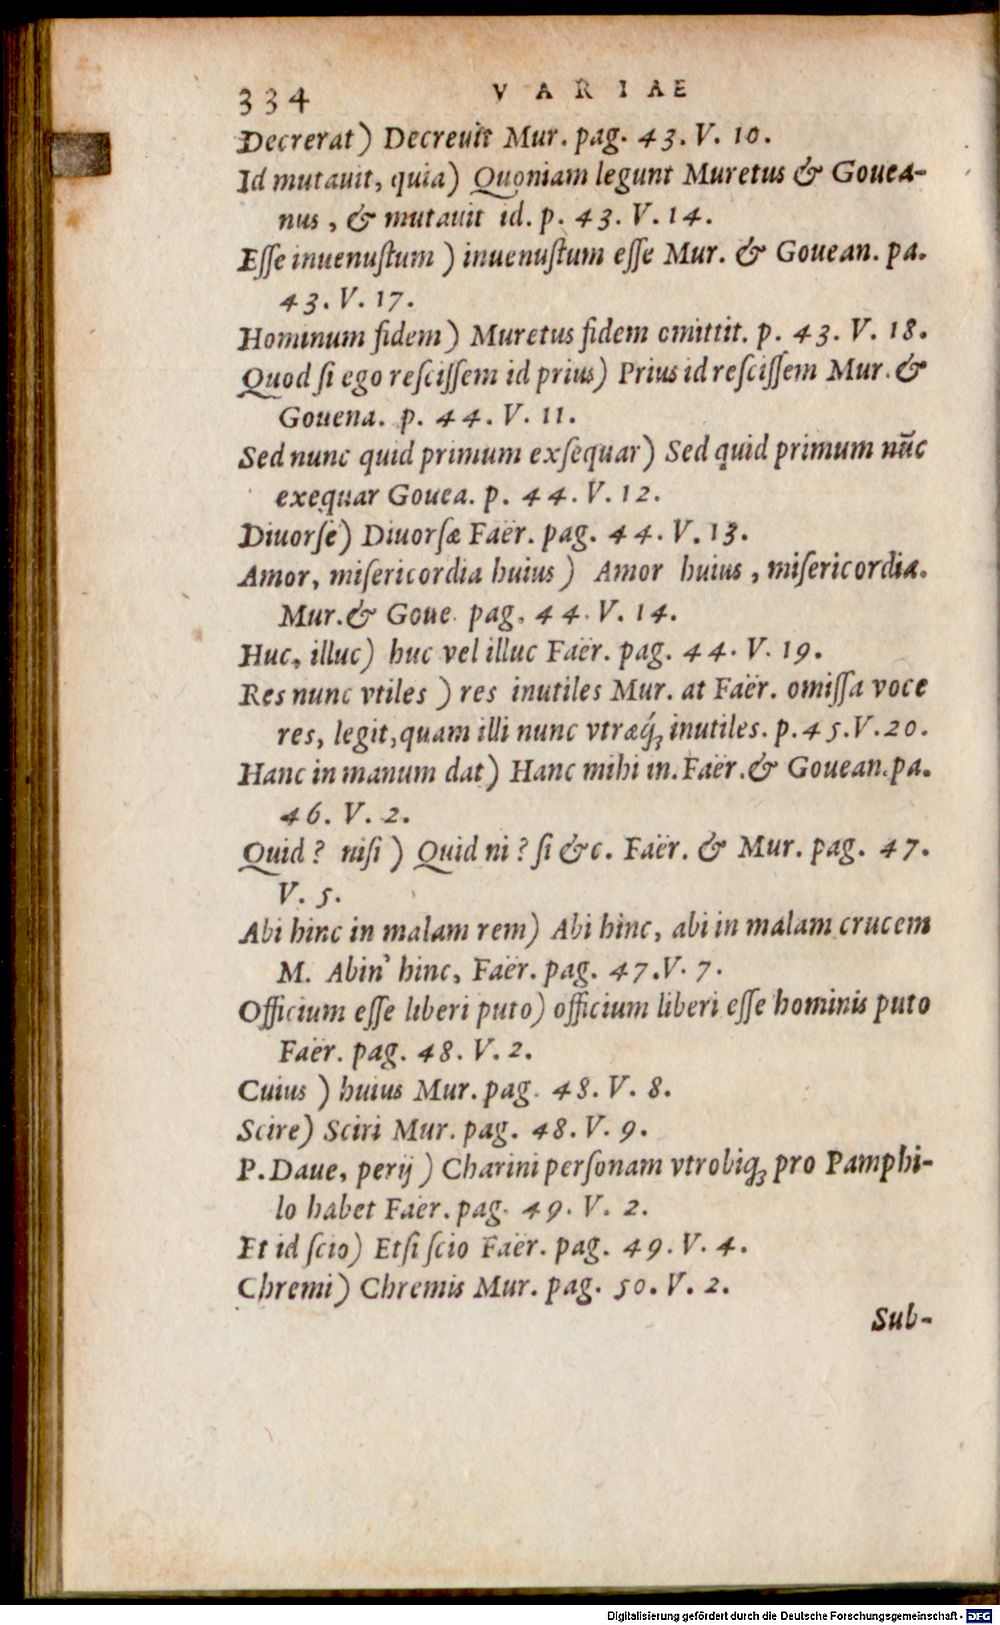 334 VARIAE
Decrerat) Decreuit Mur. pag. 43. V. 10.
Id mutauit, quia) Quoniam legunt Muretus & Gouea-
nus, & mutauit id. p. 43. V. 14.
Eſſe inuenuſtum) inuenuſtum eſſe Mur. & Gouean. pa.
43. V. 17.
Hominum fidem) Muretus fidem omittit. p. 43. V. 18.
Quod ſi ego reſciſſem id prius) Prius id reſciſſem Mur. &
Gouena. p. 44. V. 11.
Sed nunc quid primum exſequar) Sed quid primum nūc
exequar Gouea. p. 44. V. 12.
Diuorſè) Diuorſæ Faër. pag. 44. V. 13.
Amor, miſericordia huius) Amor huius, miſericordia.
Mur. & Goue. pag. 44. V. 14.
Huc, illuc) huc vel illuc Faër. pag. 44. V. 19.
Res nunc vtiles) res inutiles Mur. at Faër. omiſſa voce
res, legit, quam illi nunc vtræq́ꝫ inutiles. p. 45. V. 20.
Hanc in manum dat) Hanc mihi in. Faër. & Gouean. pa.
46. V. 2.
Quid? niſi) Quid ni? ſi &c. Faër. & Mur. pag. 47.
V. 5.
Abi hinc in malam rem) Abi hinc, abi in malam crucem
M. Abin' hinc, Faër. pag. 47. V. 7.
Officium eſſe liberi puto) officium liberi eſſe hominis puto
Faër. pag. 48. V. 2.
Cuius) huius Mur. pag. 48. V. 8.
Scire) Sciri Mur. pag. 48. V. 9.
P. Daue, perij) Charini perſonam vtrobiqꝫ pro Pamphi-
lo habet Faër. pag. 49. V. 2.
Et id ſcio) Etſi ſcio Faër. pag. 49. V. 4.
Chremi) Chremis Mur. pag. 50. V. 2.
Sub-
Digitalisierung gefördert durch die Deutsche Forschungsgemeinschaft - DFG